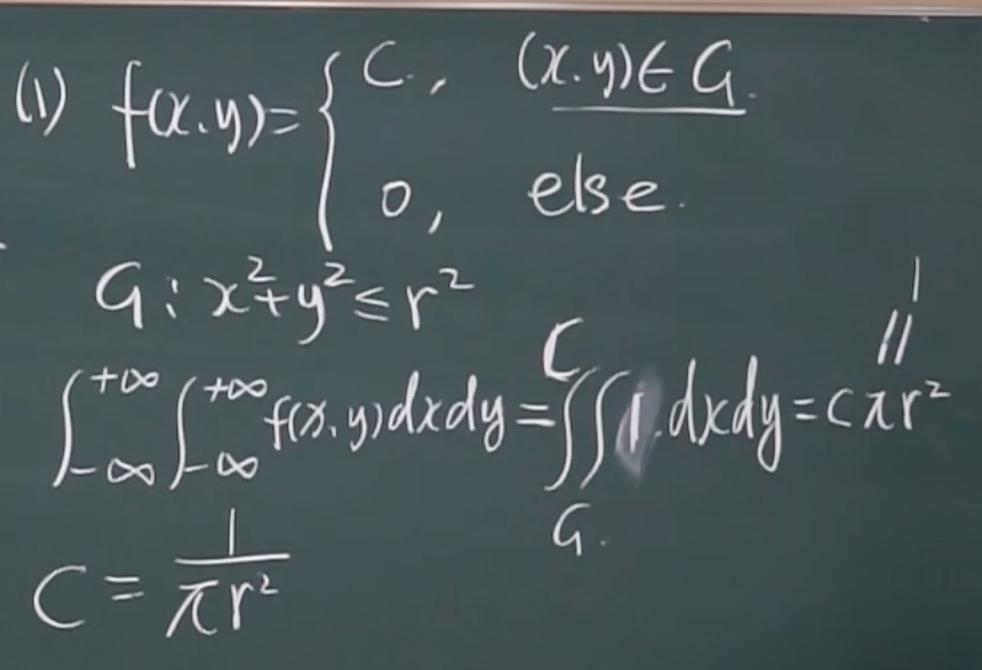 (1) f(x.y)={ C., (x.y)∈G.
0, else.
G: x²+y²≤r²
∫_{-∞}^{+∞}∫_{-∞}^{+∞}f(x.y)dxdy=C∬_{G.}1.dxdy=cπr²
||
1
C=1/πr²